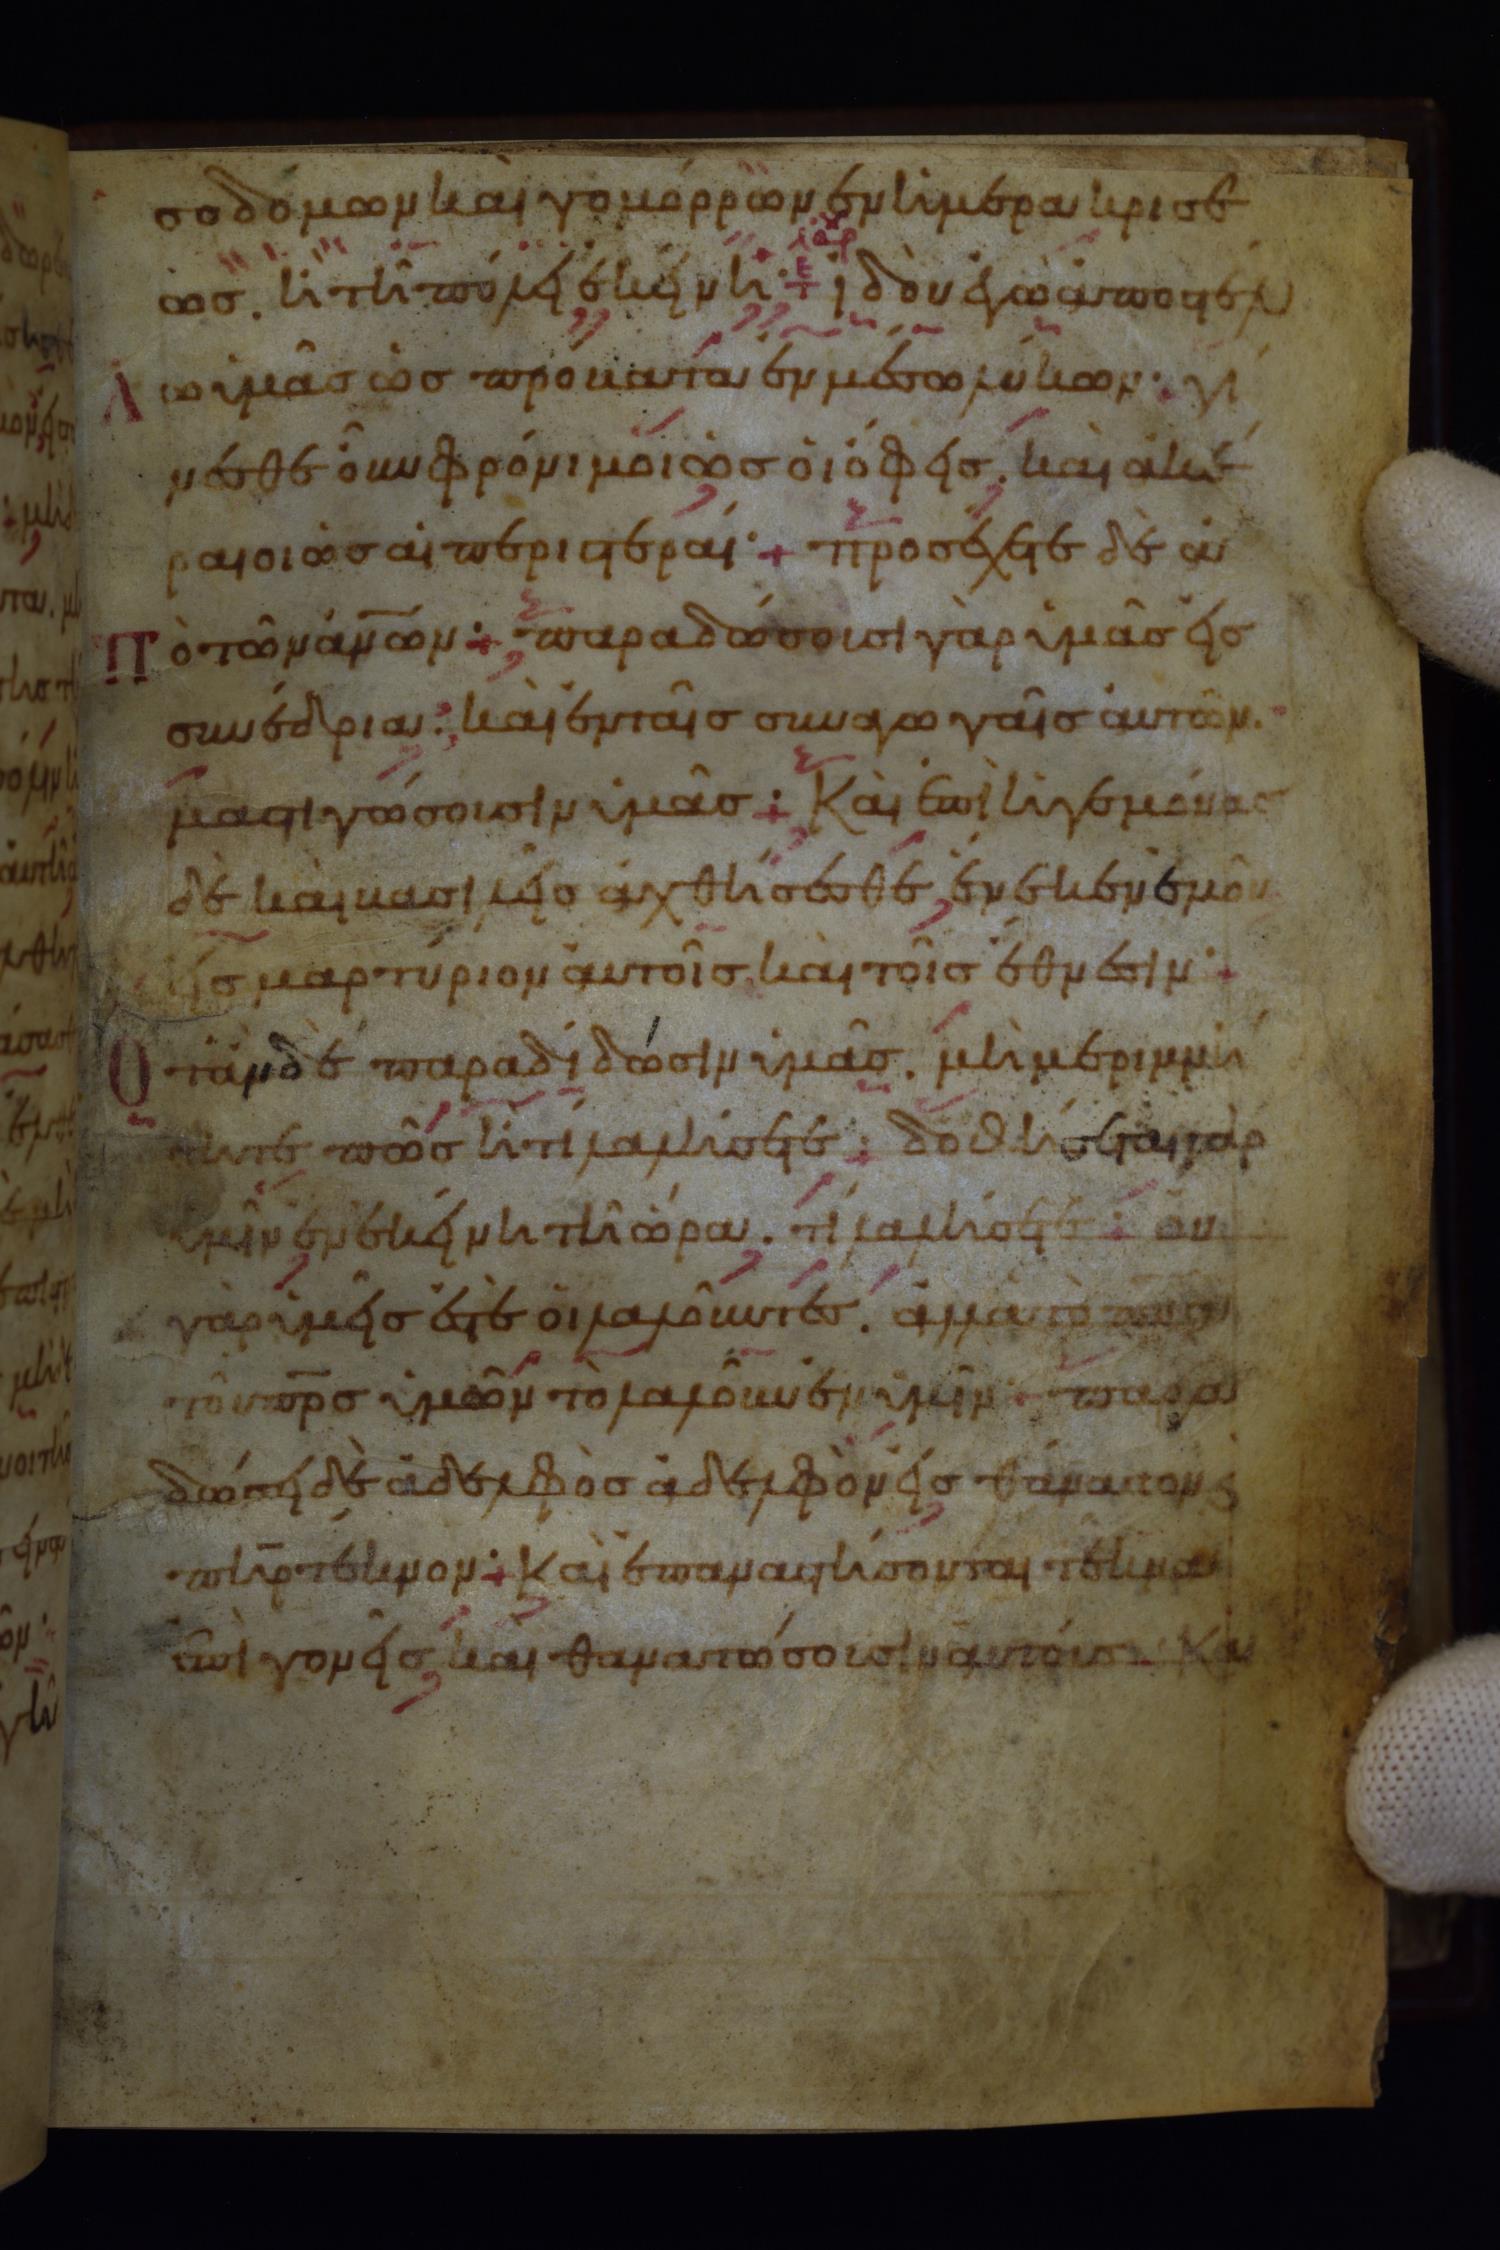 σοδόμων και γομόρρων εν ημέρα κρίσε
ως. ἢ τῆ πόλει ἐκείνη· ἰδοὺ ἐγὼ ἀποστελ
λω ὑμᾶς ὡς πρόβατα ἐν μέσω λύκων· γί
νεσθε οὖν φρόνιμοι ὡς οἱ ὄφεις. καὶ ἀκέ
ραιοι ὡς αἱ περιστεραί· προσέχετε δὲ ἀ
Π ὸ τῶν ἀν̅ω̅ν· παραδώσουσι γὰρ ὑμᾶς εἰς
συνέδρια· καὶ ἐν ταῖς συναγωγαῖς αὐτῶν.
μαστιγώσουσιν ὑμᾶς· Καὶ ἐπὶ ἡγεμόνας
δὲ καὶ βασιλεῖς ἀχθήσεσθε ἕνεκεν ἐμοῦ
εἰς μαρτύριον αὐτοῖς καὶ τοῖς ἔθνεσιν·
Ο τὰν δὲ παραδιδώσιν ὑμᾶς. μὴ μεριμνή
σητε πῶς ἢ τί λαλήσετε· δοθήσεται γὰρ
ὑμῖν ἐν ἐκείνη τῆ ὥρα. τί λαλήσετε· οὐ
γὰρ ὑμεῖς ἐστὲ οἱ λαλοῦντες. ἀλλὰ τὸ πνα
τοῦ πρ̅ς ὑμῶν τὸ λαλοῦν ἐν ὑμῖν· παρα
δώσει δὲ ἀδελφὸς ἀδελφὸν εἰς θάνατον κ
πη̅ρ τέκνον· Καὶ ἐπαναστήσονται τέκνα
ἐπὶ γονεῖς καὶ θανατώσουσιν αὐτούς· Και